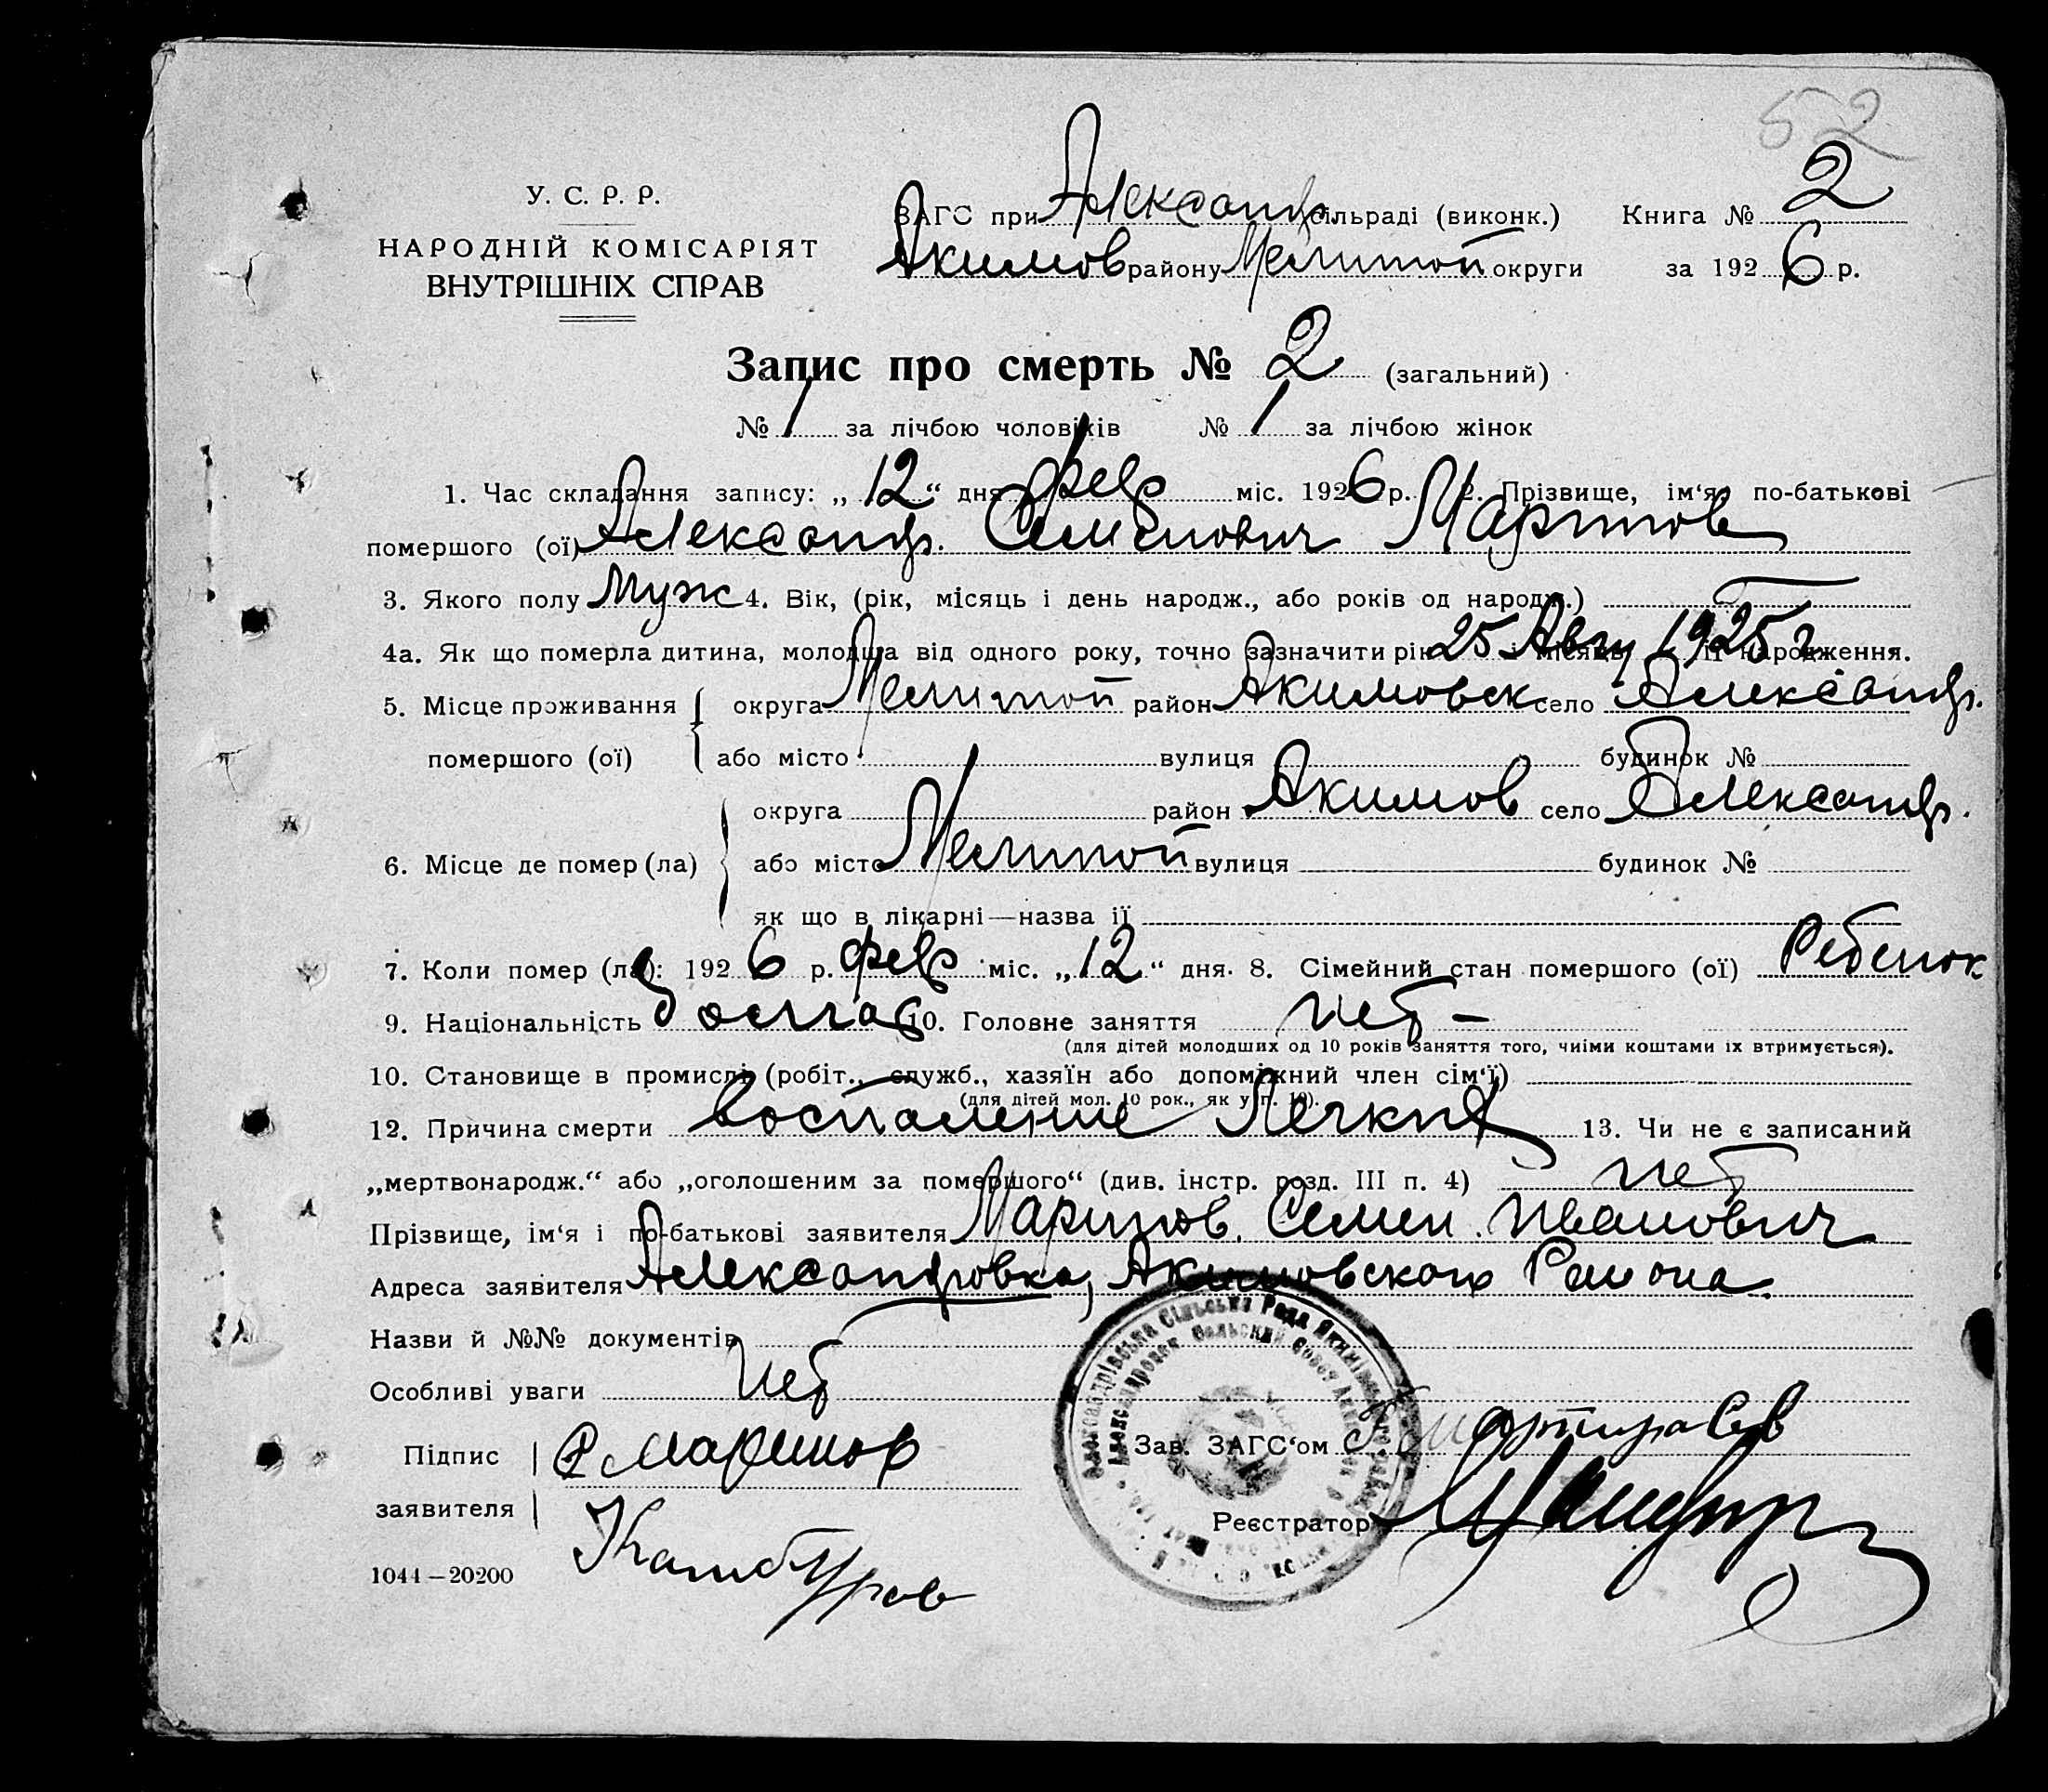 52
У. С. Р. Р.
НАРОДНІЙ КОМІСАРІЯТ
ВНУТРІШНІХ СПРАВ
ЗАГС при Александр. сільраді (виконк.) Книга № 2
Акимов району Мелитоп округи за 1926 р.
Запис про смерть № 2 (загальний)
№ 1 за лічбою чоловіків № 1 за лічбою жінок
1. Час складання запису: „ 12 “ дня февр міс. 1926 р. 2. Прізвище, ім‘я, по-батькові
помершого (ої) Александр. Семенович Маринов
3. Якого полу Муж 4. Вік, (рік, місяць і день народж., або років од народж.) —
4а. Як що померла дитина, молодша від одного року, точно зазначити рік 25 Авгу 1925 г і місяць її народження.
5. Місце проживання округа Мелитоп район Акимовск село Александр.
помершого (ої) або місто вулиця будинок №
округа район Акимов село Александр.
6. Місце де помер (ла) або місто Мелитоп вулиця будинок №
як що в лікарні—назва її
7. Коли помер (ла): 1926 р. февр міс. „ 12 “ дня. 8. Сімейний стан помершого (ої) Ребенок
9. Національність болгар 10. Головне заняття нет –
(для дітей молодших од 10 років заняття того, чиїми коштами їх втримується).
10. Становище в промислі (робіт., служб., хазяїн або допоміжний член сім‘ї)
(для дітей мол. 10 рок., як у п. 10).
12. Причина смерти воспаление Легких 13. Чи не є записаний
„мертвонародж.“ або „оголошеним за помершого“ (див. інстр. розд. III п. 4) нет
Прізвище, ім‘я і по-батькові заявителя Маринов. Семен. Иванович
Адреса заявителя Александровка, Акимовского Раиона.
Назви й №№ документів
Особливі уваги нет
Підпис Маринов Зав. ЗАГС‘ом
заявителя Реєстратор
1044—20200